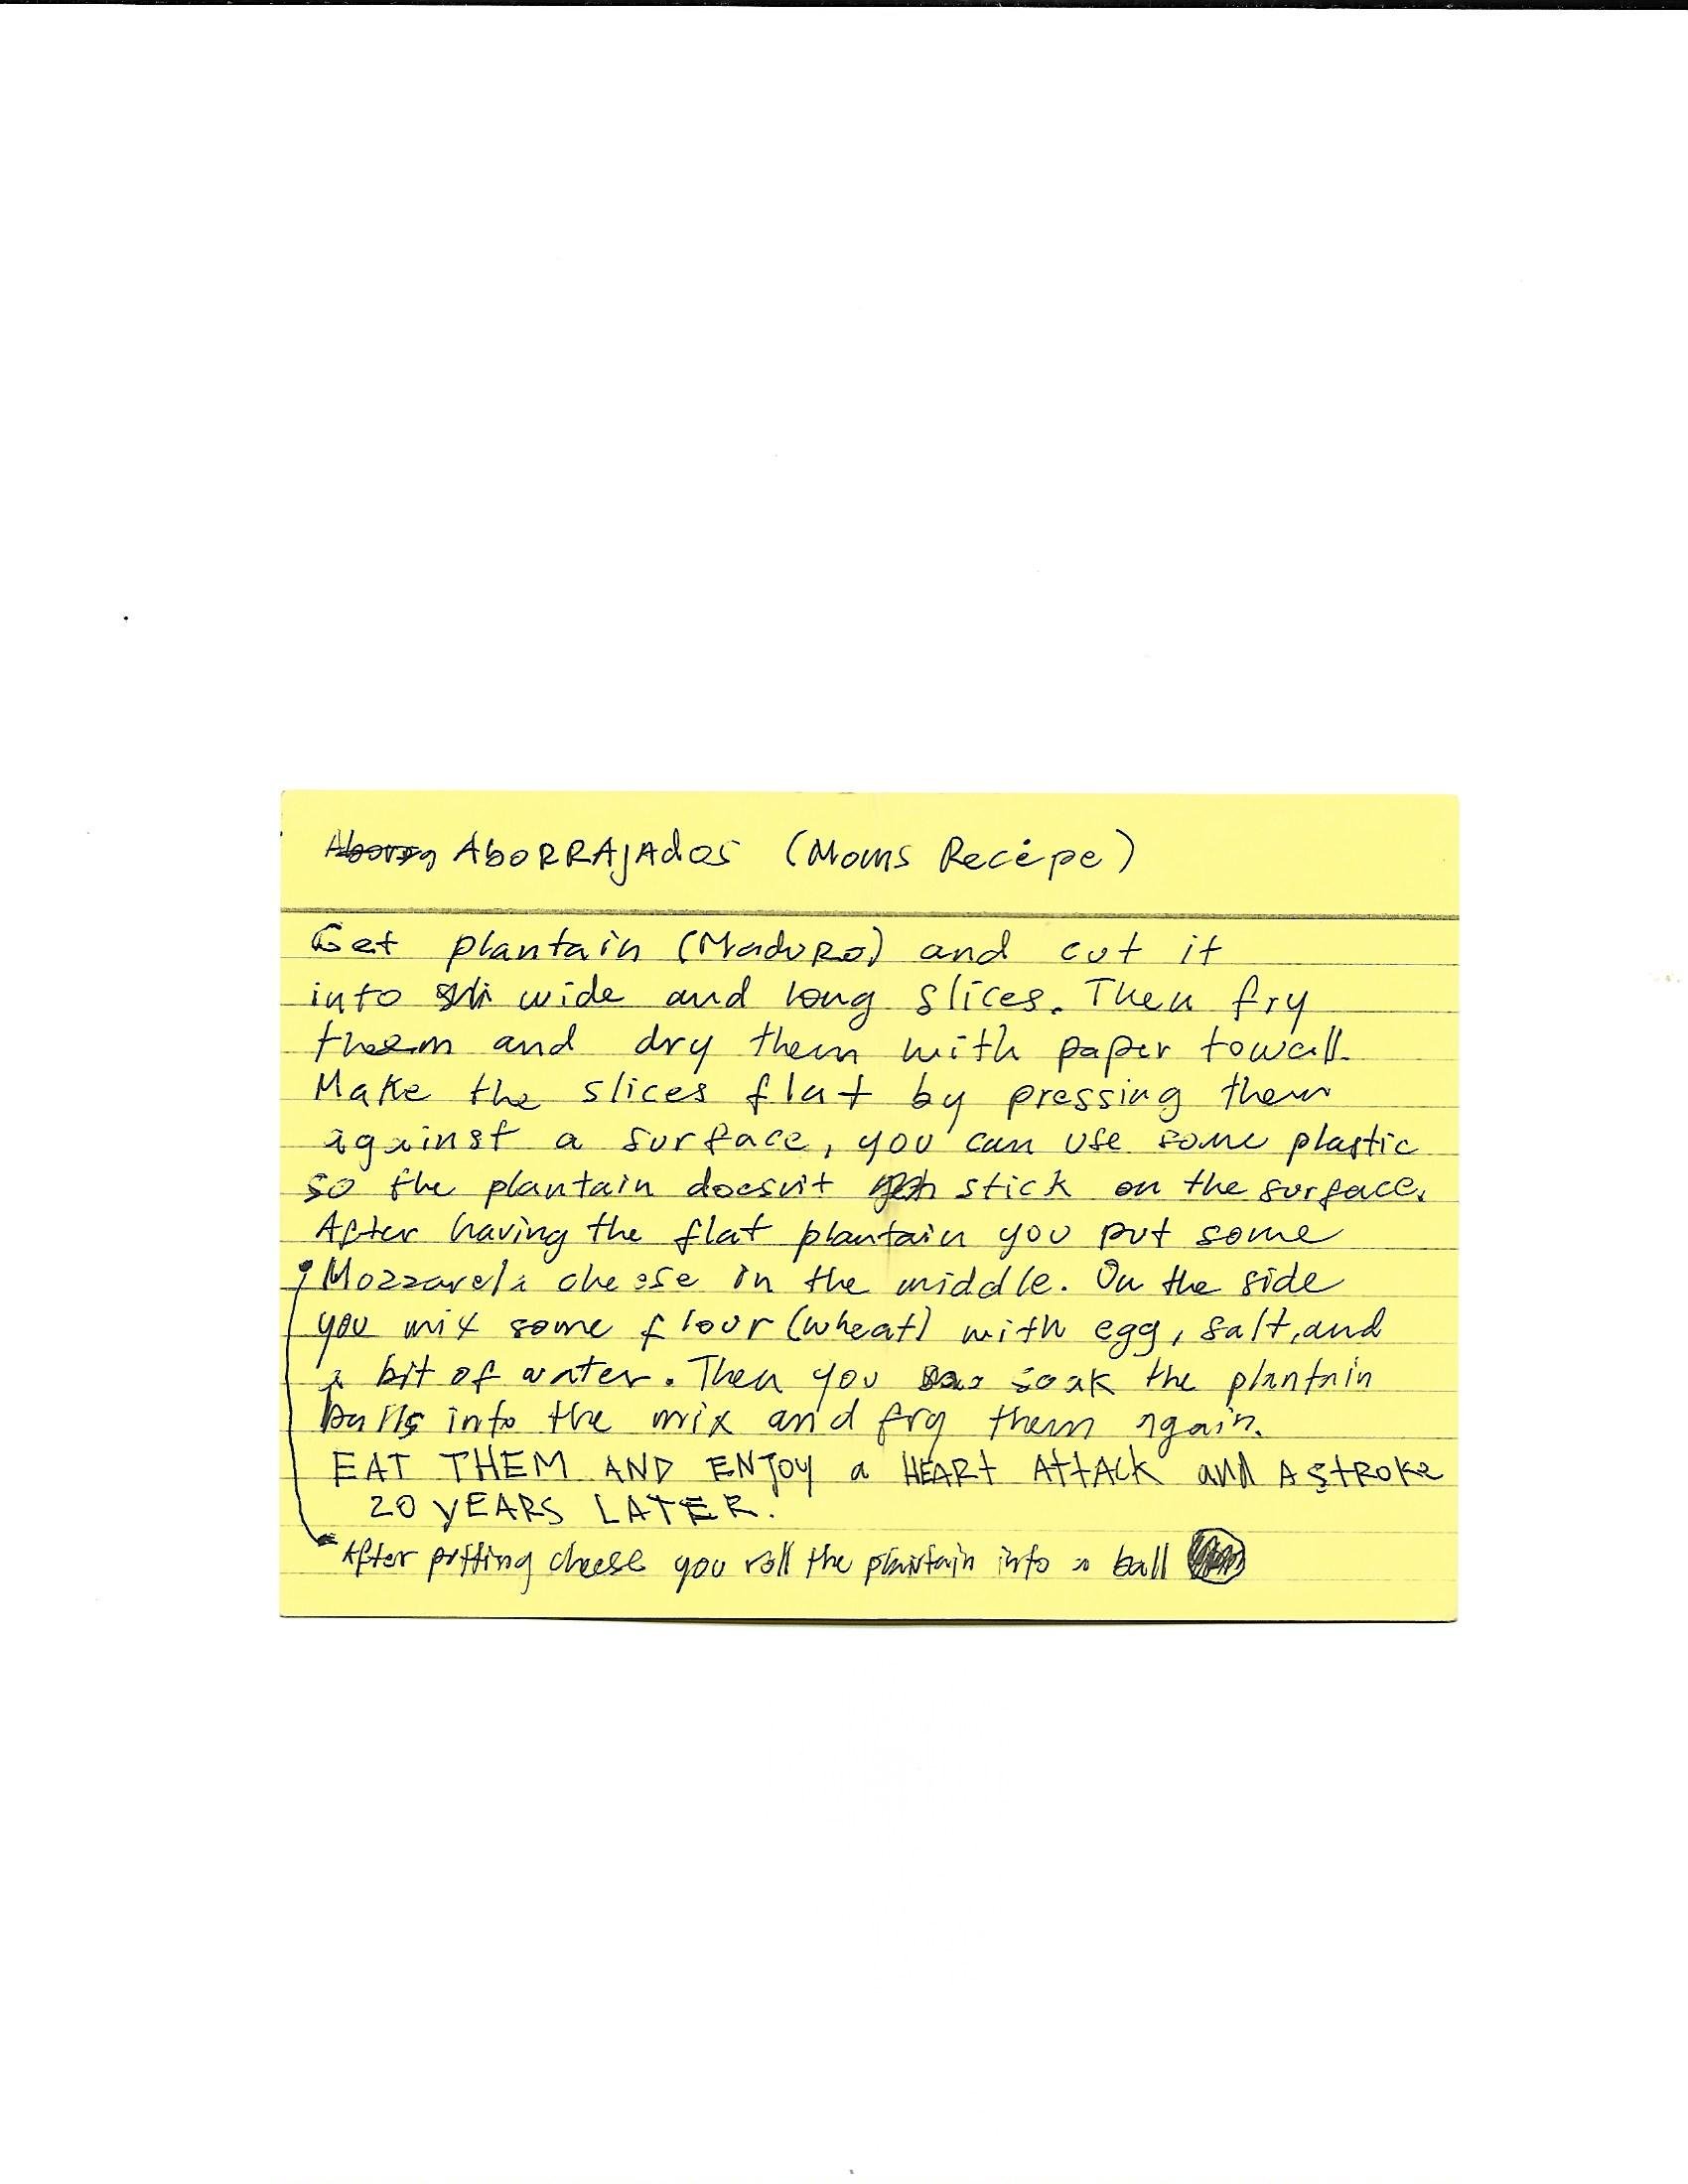 ABORRAJAdos (Moms Recipe)
Get plantain (MaduRo) and cut it
into wide and long slices. Then fry
them and dry them with paper towall.
Make the slices flat by pressing them
against a surface, you can use some plastic
so the plantain doesn't stick on the surface.
After having the flat plantain you put some
Mozzarela cheese in the middle. On the side
you mix some flour (wheat) with egg, salt, and
a bit of water. Then you soak the plantain
balls into the mix and fry them again.
EAT THEM AND ENJOY a HEARt AttACK and A StROKe
20 YEARS LATER.
*After putting cheese you roll the plantain into a ball